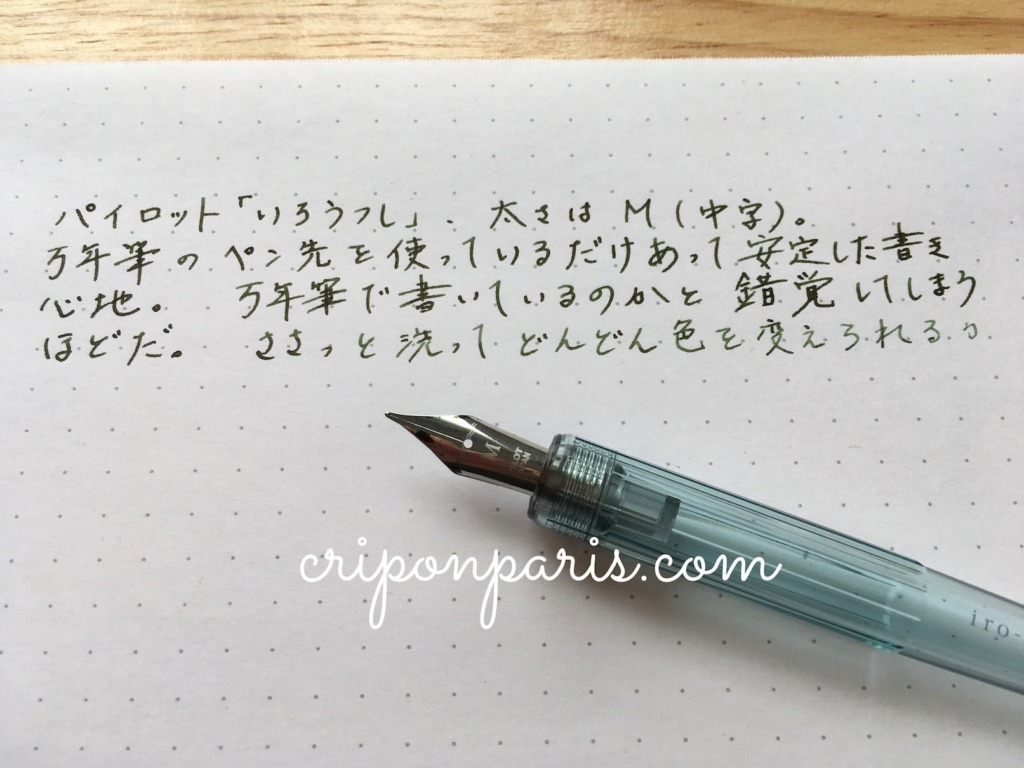 パイロット「いろうつし」、太さは M (中字)。
万年筆の ペン先を使っているだけあって安定した書き
心地。 万年筆で書いているのかと 錯覚してしまう
ほどだ。 ささっと洗って どんどん色を変えられる。
M
criponparis.com
iro-